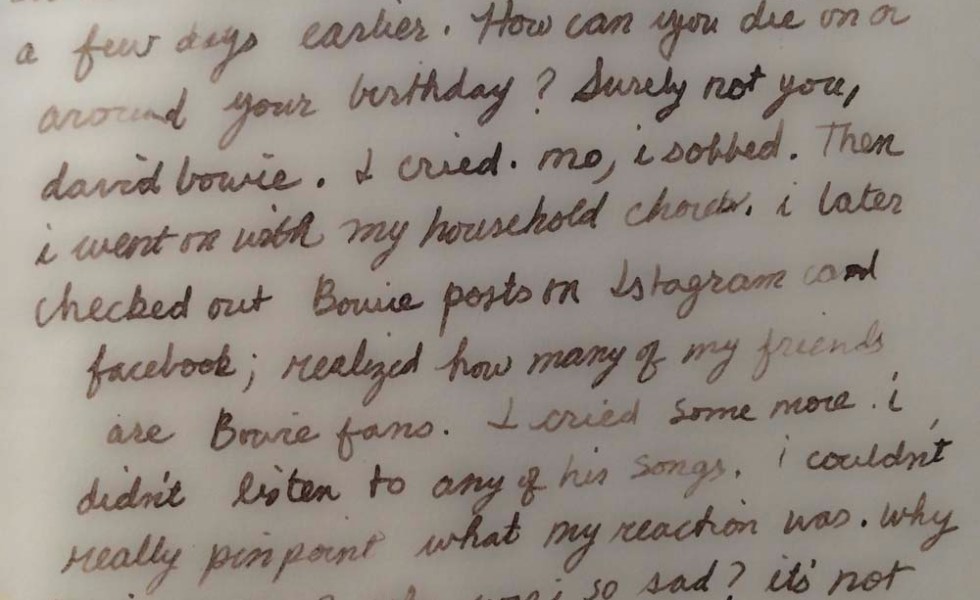 a few days earlier. How can you die on or
around your birthday? Surely not you,
david bowie. I cried. no, i sobbed. Then
i went on with my household chores. i later
checked out Bowie posts on Istagram and
facebook; realized how many of my friends
are Bowie fans. I cried some more. i
didn't listen to any of his songs. i couldn't
really pinpoint what my reaction was. why
i so sad? it's not